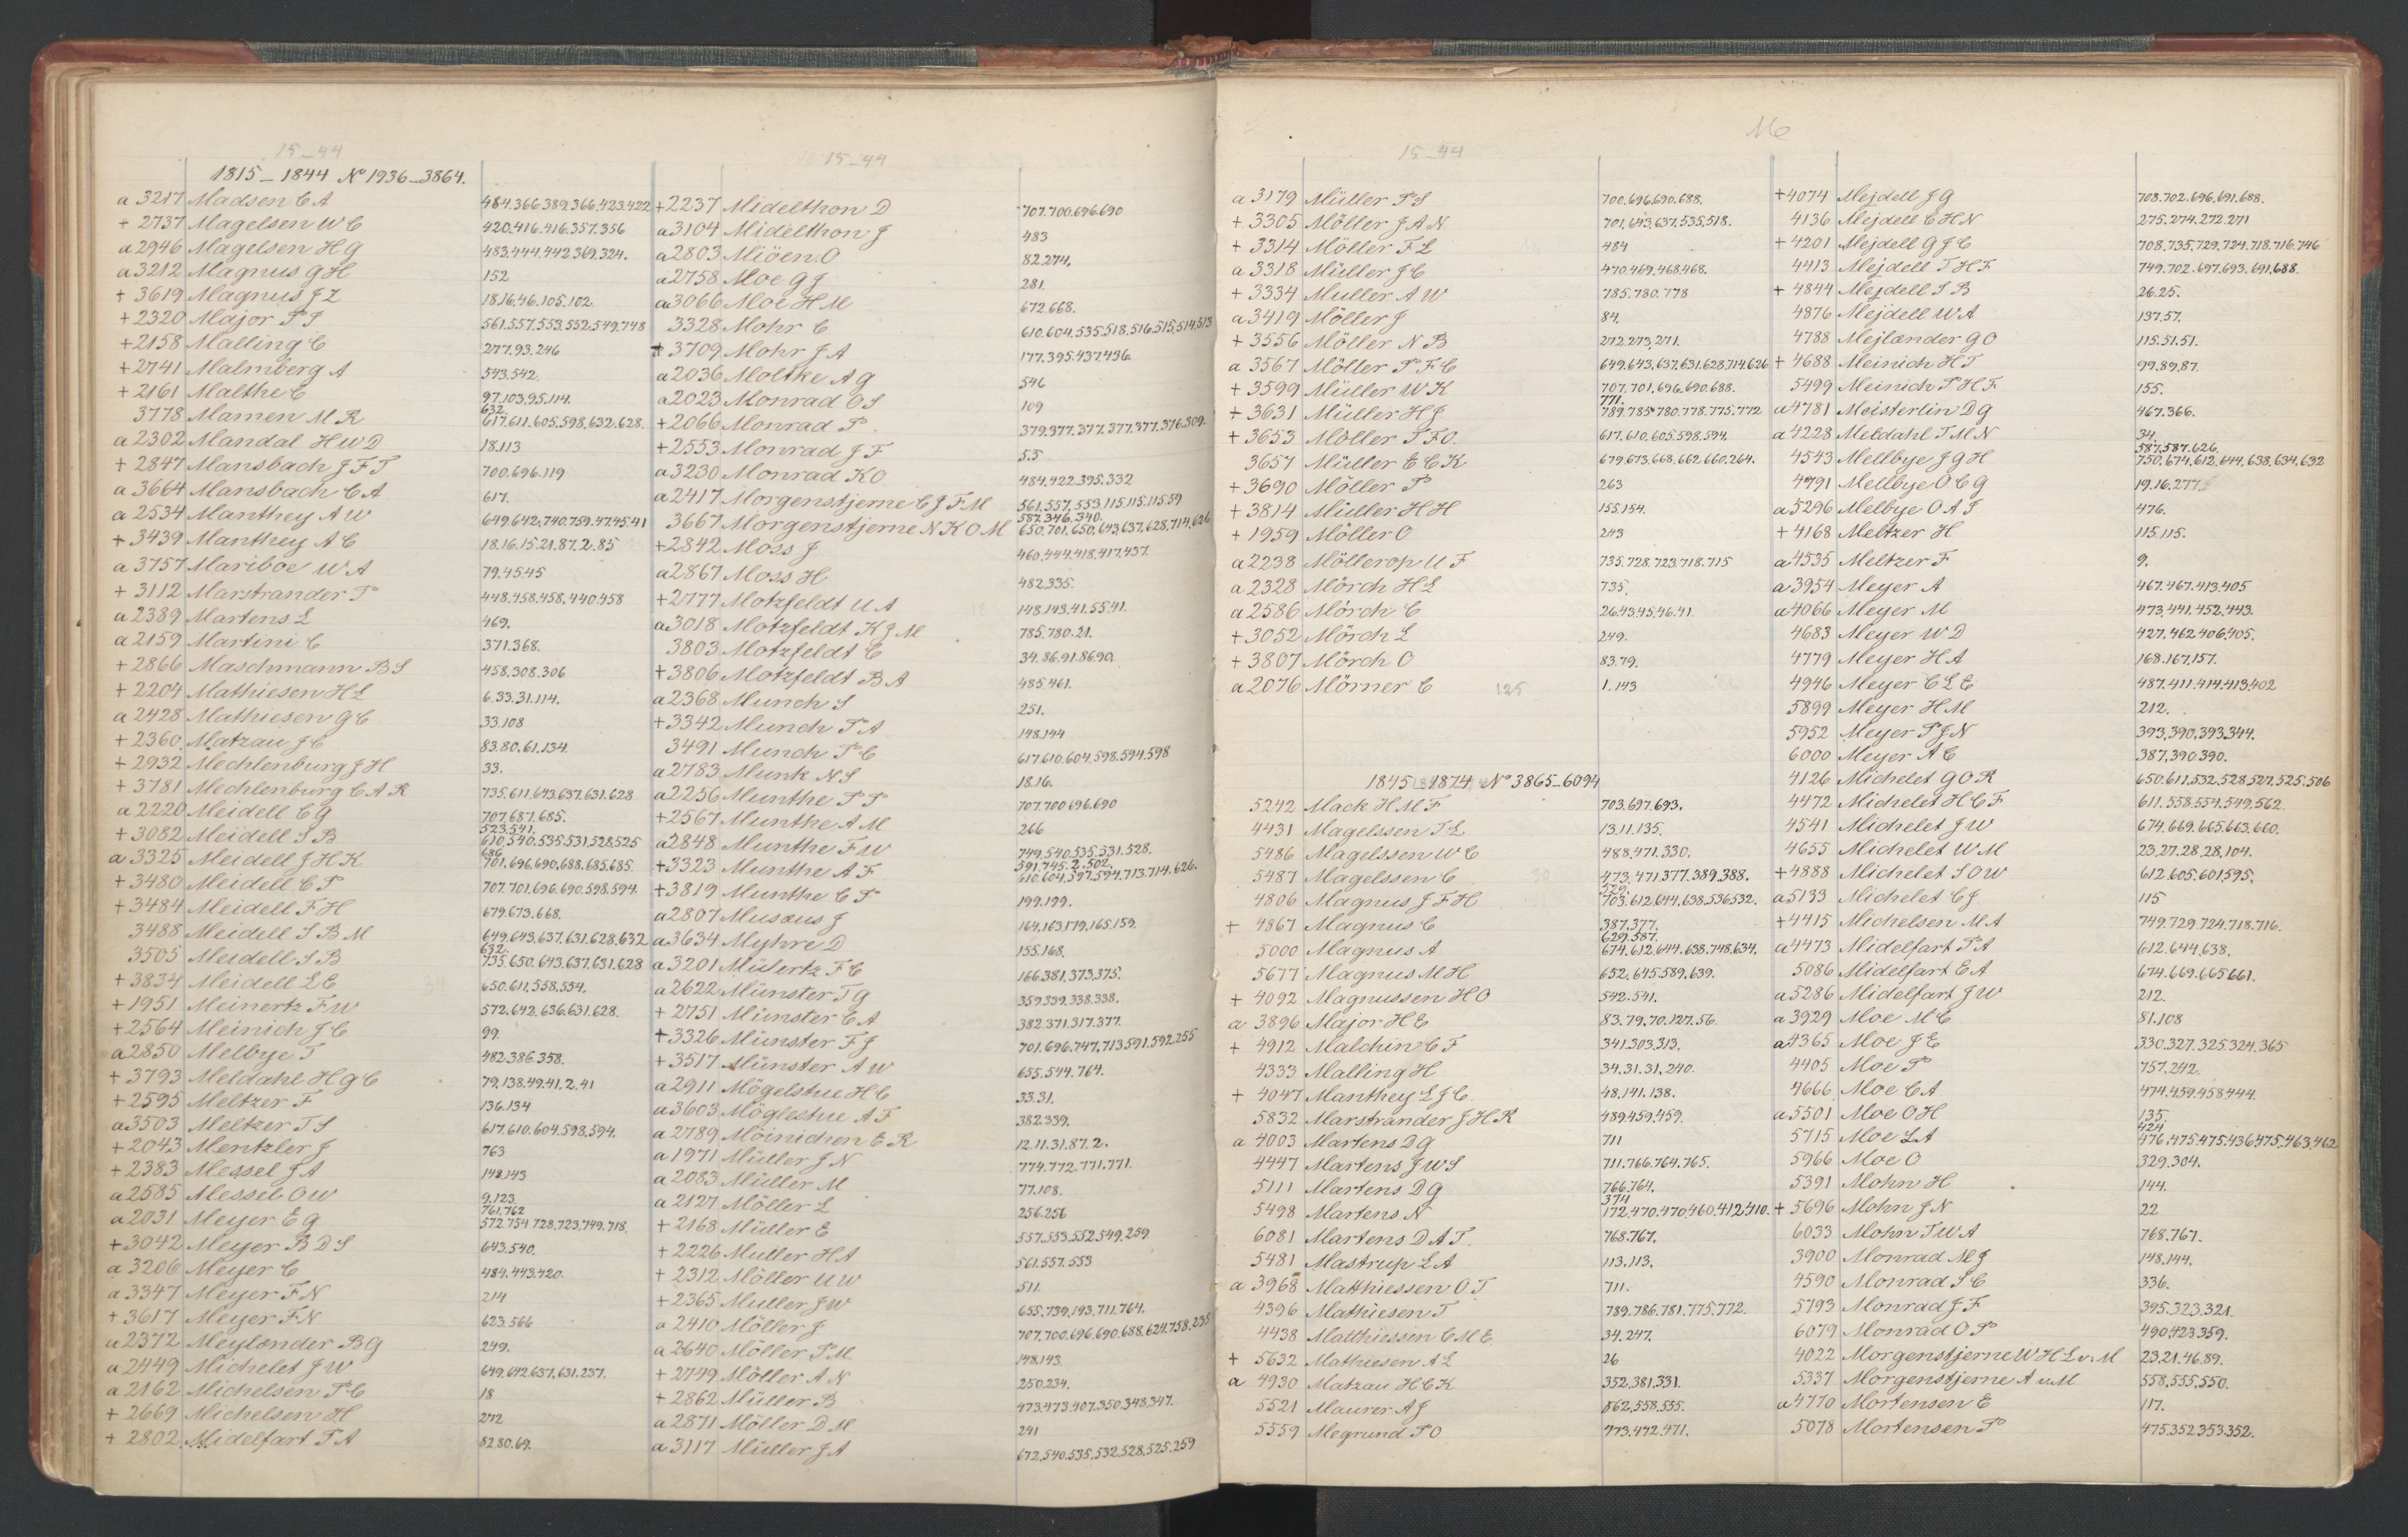 15_44
1815_1844 No 1936_3864.
a 3217 Madsen C A 484.366.389.366.423.422
+ 2737 Magelsen W C 420.416.416.357.356
a 2946 Magelsen H G 483.444.442.369.324.
a 3212 Magnus G H 152
+ 3619 Magnus J Z 18.16.46.105.102.
+ 2320 Major P J 561.557.553.552.549.748
+ 2158 Malling C 277.93.246
+ 2741 Malmberg A 543.542.
+ 2161 Malthe C 97.103.95.114.
3778 Mamen M R 632. 617.611.605.598.632.628.
a 2302 Mandal H W D 18.113
+ 2847 Mansbach J F T 700.696.119
a 3664 Mansbach C A 617.
a 2534 Manthey A W 649.642.740.759.47.45.41
+ 3439 Manthey A C 18.16.15.21.87.2.85
a 3757 Mariboe W A 79.45.45
+ 3112 Marstrander P 448.458.458.440.458
a 2389 Martens L 469.
a 2159 Martini C 371.368.
+ 2866 Maschmann B S 458.308.306
+ 2204 Mathiesen H L 6.33.31.114.
a 2428 Mathiesen G C 33.108
+ 2360 Matzau J C 83.80.61.134.
+ 2932 Mechlenburg J H 33.
+ 3781 Mechlenburg C A R 735.611.643.637.631.628
a 2220 Meidell C G 707.687.685.
+ 3082 Meidell S B 523.541. 610.540.535.531.528.525
a 3325 Meidell J H K 686 701.696.690.688.685.685.
+ 3480 Meidell C P 707.701.696.690.598.594.
+ 3484 Meidell F H 679.673.668.
3488 Meidell S B M 649.643.637.631.628.632
3505 Meidell S B 632. 735.650.643.637.631.628
+ 3834 Meidell L E 650.611.558.554.
+ 1951 Meinertz F W 572.642.636.631.628.
+ 2564 Meinich J C 99.
a 2850 Melbye T 482.386.358.
+ 3793 Meldahl H G C 79.138.49.41.2.41
+ 2595 Meltzer F 136.134
a 3503 Meltzer T S 617.610.604.598.594.
+ 2043 Mentzler J 763
+ 2383 Messel J A 148.143
a 2585 Messel O W 9.123.
a 2031 Meyer E G 761.762 572.754.728.723.749.718.
+ 3042 Meyer B D S 643.540.
a 3206 Meyer C 484.443.420.
a 3347 Meyer F N 214
+ 3617 Meyer F N 623.566
a 2372 Meylænder B G 249.
a 2449 Michelet J W 649.642.637.631.237.
a 2162 Michelsen P C 18
+ 2669 Michelsen H 272
+ 2802 Midelfart T A 82.80.69.
15_44
+ 2237 Midelthon D 707.700.696.690
a 3104 Midelthon J 483
a 2803 Miöen O 82.274.
a 2758 Moe G J 281.
a 3066 Moe H M 672.668.
3328 Mohr C 610.604.535.518.516.515.514.513
+ 3709 Mohr J A 177.395.437.436
a 2036 Moltke A G 546
a 2023 Monrad O S 109
+ 2066 Monrad P 379.377.377.377.377.376.309.
+ 2553 Monrad J F 55
a 3230 Monrad K O 484.422.395.332
a 2417 Morgenstjerne C J F M 561.557.553.115.115.115.59
3667 Morgenstjerne N K O M 587.346.340. 650.701.650.643.637.628.714.626
+ 2842 Moss J 460.444.418.417.437.
a 2867 Moss H 482.335.
+ 2777 Motzfeldt U A 148.143.41.55.41.
a 3018 Motzfeldt K J M 785.780.21.
3803 Motzfeldt C 34.86.91.86.90.
+ 3806 Motzfeldt B A 485.461.
a 2368 Munch S 251.
+ 3342 Munch P A 148.144
3491 Munch P C 617.610.604.598.594.598
a 2783 Munk N S 18.16.
a 2256 Munthe P P 707.700.696.690
+ 2567 Munthe A M 266
a 2848 Munthe F W 749.540.535.531.528.
+ 3323 Munthe A F 591.745.2.502. 610.604.597.594.713.714.626.
+ 3819 Munthe C P 199.199.
a 2807 Musæus J 164.163.179.165.159.
a 3634 Myhre D 155.168.
a 3201 Mülertz F C 166.381.373.375.
a 2622 Münster T G 359.339.338.338.
+ 2751 Münster C A 382.371.317.377.
+ 3326 Münster F J 701.696.747.713.591.592.255
+ 3517 Münster A W 655.544.764.
a 2911 Mögelstue H C 33.31.
a 3603 Möglestue A F 382.339.
a 2789 Möinichen E R 12.11.31.87.2.
a 1971 Müller J N 774.772.771.771.
a 2083 Müller M 77.108.
a 2127 Möller L 256.256
+ 2168 Müller E 557.553.552.549.259
+ 2226 Muller H A 561.557.553
+ 2312 Möller U W 511.
+ 2365 Muller J W 655.739.193.711.764.
a 2410 Möller J 707.700.696.690.688.624.758.235
a 2640 Möller P M 148.143.
+ 2749 Möller A N 250.234.
+ 2862 Müller B 473.473.407.350.348.347.
a 2871 Möller D M 241
a 3117 Müller J A 672.540.535.532.528.525.259
M
15_44
a 3179 Müller P S 700.696.690.688.
+ 3305 Möller J A N 701.643.637.535.518.
+ 3314 Möller F L 484
a 3318 Müller J C 470.469.468.468.
+ 3334 Muller A W 785.780.778
a 3419 Möller J 84.
+ 3556 Möller N B 272.273.271.
a 3567 Möller P F C 649.643.637.631.628.714.626
+ 3599 Müller W K 707.701.696.690.688.
+ 3631 Müller H J 771. 789.785.780.778.775.772
+ 3653 Möller P F O 617.610.605.598.594.
3657 Müller E C K 679.673.668.662.660.264.
+ 3690 Möller P 263
+ 3814 Müller H H 155.154.
+ 1959 Möller O 243
a 2238 Möllerop U F 735.728.723.718.715
a 2328 Mörch H L 735.
a 2586 Mörch C 26.43.45.46.41.
+ 3052 Mörch L 249.
+ 3807 Mörch O 83.79.
a 2076 Mörner C 125 1.143
1845_1874 No 3865_6094
5242 Mack H M F 703.697.693.
4431 Magelssen T L 13.11.135.
5486 Magelssen W C 488.471.330.
5487 Magelssen C 473.471.377.389.388.
4806 Magnus J F H 529. 703.612.644.638.536.532.
+ 4867 Magnus C 387.377.
5000 Magnus A 629.587. 674.612.644.638.748.634.
5677 Magnus M H 652.645.589.639.
+ 4092 Magnussen H O 542.541.
a 3896 Major H E 83.79.70.127.56.
+ 4912 Malchin C F 341.303.313.
4333 Malling H 34.31.31.240.
+ 4047 Manthey L J C 48.141.138.
5832 Marstrander J H R 489.459.459.
a 4003 Martens D G 711
4447 Martens J W S 711.766.764.765.
5111 Martens D G 766.764.
5498 Martens N 374 172.470.470.460.412.410.
6081 Martens D A T 768.767.
5481 Mastrup L A 113.113.
a 3968 Matthiessen O T 711.
4396 Mathiesen T 789.786.781.775.772.
4438 Matthiessen C M E 34.247.
+ 5632 Mathiesen A L 26
a 4930 Matzau H C K 352.381.331.
5521 Maurer A J 562.558.535.
5559 Megrund P O 473.472.471.
+ 4074 Mejdell J G 708.702.696.691.688.
4136 Mejdell C H N 275.274.272.271
+ 4201 Mejdell G J C 708.735.729.724.718.716.746
4413 Mejdell T H F 749.702.697.693.691.688.
+ 4844 Mejdell S B 26.25.
4876 Mejdell W A 137.57.
4788 Mejlænder G O 115.51.51.
+ 4688 Meinich H T 99.89.87.
5499 Meinich P H F 155.
a 4781 Meisterlin D G 467.366.
a 4228 Meldahl T M N 34.
4543 Mellbye J G H 587.587.626. 750.674.612.644.638.634.632
4791 Mellbye O C G 19.16.277.
a 5296 Melbye O A S 476.
+ 4168 Meltzer H 115.115.
a 4535 Meltzer F 9.
a 3954 Meyer A 467.467.413.405
a 4066 Meyer M 473.441.452.443.
4683 Meyer W D 427.462.406.405.
4779 Meyer H A 168.167.157.
4946 Meyer C L E 487.411.414.413.402
5899 Meyer H M 212.
5952 Meyer P J N 393.390.393.344.
6000 Meyer A C 387.390.390.
4126 Michelet G O R 650.611.532.528.527.525.506
4472 Michelet H C F 611.558.554.549.562.
4541 Michelet J W 674.669.665.663.660.
4655 Michelet W M 23.27.28.28.104.
+ 4888 Michelet S O W 612.605.601.595.
a 5133 Michelet C J 115
+ 4415 Michelsen M A 749.729.724.718.716.
a 4473 Midelfart P A 612.644.638.
5086 Midelfart E A 674.669.665.661.
a 5286 Midelfart J W 212.
a 3929 Moe M C 81.108
a 4365 Moe J E 330.327.325.324.365
4405 Moe P 757.242.
4666 Moe C A 474.459.458.444.
a 5501 Moe O H 135.
5715 Moe L A 424 476.475.475.436.475.463.462
5966 Moe O 329.304.
5391 Mohn H 144.
+ 5696 Mohn J N 22
6033 Mohn T W A 768.767.
3900 Monrad M J 148.144.
4590 Monrad S C 336.
5793 Monrad J F 395.323.321.
6079 Monrad O P 490.423.359.
4022 Morgenstjerne W H L v. M 23.21.46.89.
5337 Morgenstjerne A v. M 558.555.550.
a 4770 Mortensen E 117.
5078 Mortensen P 475.352.353.352.